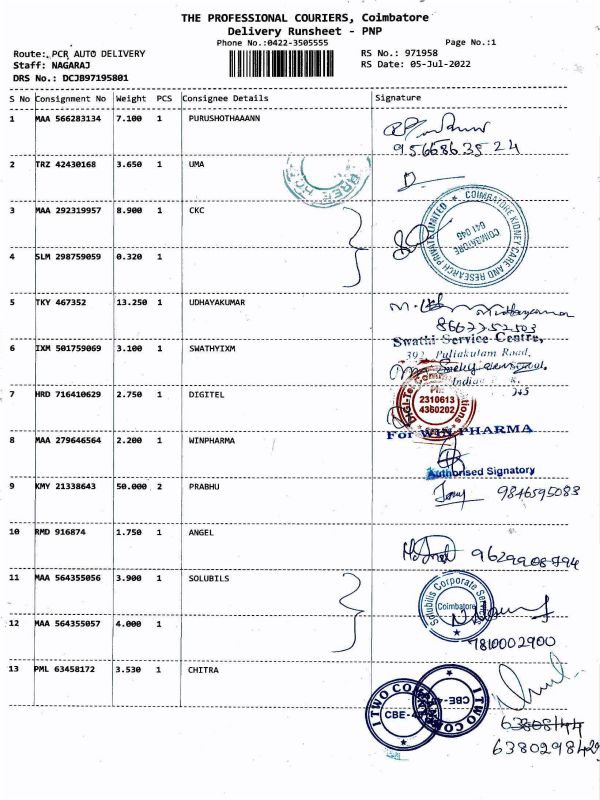 THE PROFESSIONAL COURIERS, Coimbatore
Delivery Runsheet - PNP
Phone No.:0422-3505555
Page No.:1
Route: PCR AUTO DELIVERY
RS No.: 971958
Staff: NAGARAJ
RS Date: 05-Jul-2022
DRS No.: DCJB97195801
S No Consignment No Weight PCS Consignee Details Signature
1 MAA 566283134 7.100 1 PURUSHOTHAAANN
9566863524
2 TRZ 42430168 3.650 1 UMA
3 MAA 292319957 8.900 1 CKC
COIMBATORE KIDNEY CARE AND RESEARCH PRIVATE LIMITED
COIMBATORE
641 045
4 SLM 298759059 0.320 1
5 TKY 467352 13.250 1 UDHAYAKUMAR
8667352503
Swathi Service Centre,
392, Puliakulam Road,
6 IXM 501759069 3.100 1 SWATHYIXM
7 HRD 716410629 2.750 1 DIGITEL
2310613
4360202
For WIN PHARMA
8 MAA 279646564 2.200 1 WINPHARMA
Authorised Signatory
9 KMY 21338643 50.000 2 PRABHU
9846595083
10 RMD 916874 1.750 1 ANGEL
11 MAA 564355056 3.900 1 SOLUBILS
Solubilis Corporate Services
Coimbatore
12 MAA 564355057 4.000 1
9810002900
13 PML 63458172 3.530 1 CHITRA
I TWO CO
CBE-4
CBE-4
I TWO CO